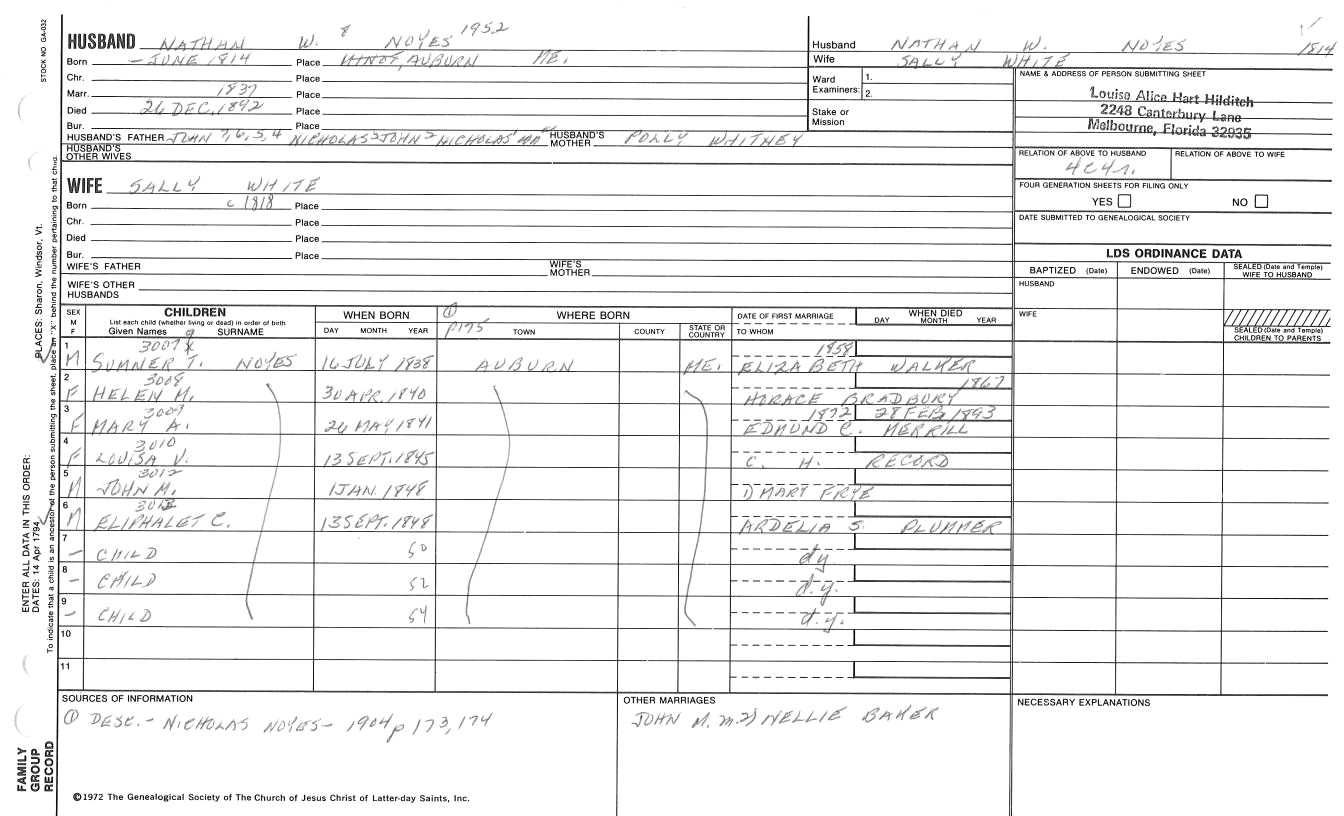 STOCK NO. GA-032
HUSBAND NATHAN W. 8 NOYES 1952
Born - JUNE 1814 Place MINOT, AUBURN ME.
Chr. Place
Marr. 1837 Place
Died 26 DEC, 1892 Place
Bur. Place
HUSBAND'S FATHER JOHN 7, 6, 5, 4 NICHOLAS 3 JOHN 2 NICHOLAS 1 HUSBAND'S MOTHER POLLY WHITNEY
HUSBAND'S OTHER WIVES
WIFE SALLY WHITE
Born c 1818 Place
Chr. Place
Died Place
Bur. Place
WIFE'S FATHER WIFE'S MOTHER
WIFE'S OTHER HUSBANDS
Husband NATHAN W. NOYES 1814
Wife SALLY WHITE
Ward Examiners: 1. 2.
Stake or Mission
NAME & ADDRESS OF PERSON SUBMITTING SHEET
Louise Alice Hart Hilditch
2248 Canterbury Lane
Melbourne, Florida 32935
RELATION OF ABOVE TO HUSBAND RELATION OF ABOVE TO WIFE
4C4r.
FOUR GENERATION SHEETS FOR FILING ONLY
YES NO
DATE SUBMITTED TO GENEALOGICAL SOCIETY
LDS ORDINANCE DATA
BAPTIZED (Date) ENDOWED (Date) SEALED (Date and Temple) WIFE TO HUSBAND
HUSBAND
WIFE
SEALED (Date and Temple) CHILDREN TO PARENTS
SEX M F
CHILDREN
List each child (whether living or dead) in order of birth
Given Names 9 SURNAME
WHEN BORN
DAY MONTH YEAR
① WHERE BORN
p175 TOWN COUNTY STATE OR COUNTRY
DATE OF FIRST MARRIAGE
TO WHOM
WHEN DIED
DAY MONTH YEAR
1 M 3007 SUMNER T. NOYES 16 JULY 1838 AUBURN ME. 1859 ELIZABETH WALKER
2 F 3008 HELEN M. 30 APR. 1840 1867 HORACE BRADBURY
3 F 3009 MARY A. 26 MAY 1841 1872 28 FEB 1893 EDMUND C. MERRILL
4 F 3010 LOUISA V. 13 SEPT. 1845 C. H. RECORD
5 M 3012 JOHN M. 1 JAN 1848 1) MARY FRYE
6 M ELIPHALET C. 13 SEPT. 1848 ARDELIA S. PLUMMER
7 - CHILD 50 dy
8 - CHILD 52 d.y.
9 - CHILD 54 d.y.
10
11
SOURCES OF INFORMATION
① DESC. - NICHOLAS NOYES - 1904 p 173, 174
OTHER MARRIAGES
JOHN M. m. 2) NELLIE BAKER
NECESSARY EXPLANATIONS
©1972 The Genealogical Society of The Church of Jesus Christ of Latter-day Saints, Inc.
FAMILY GROUP RECORD
ENTER ALL DATA IN THIS ORDER:
DATES: 14 Apr 1794
PLACES: Sharon, Windsor, Vt.
To indicate that a child is an ancestor of the person submitting the sheet, place an "X" behind the number pertaining to that child.